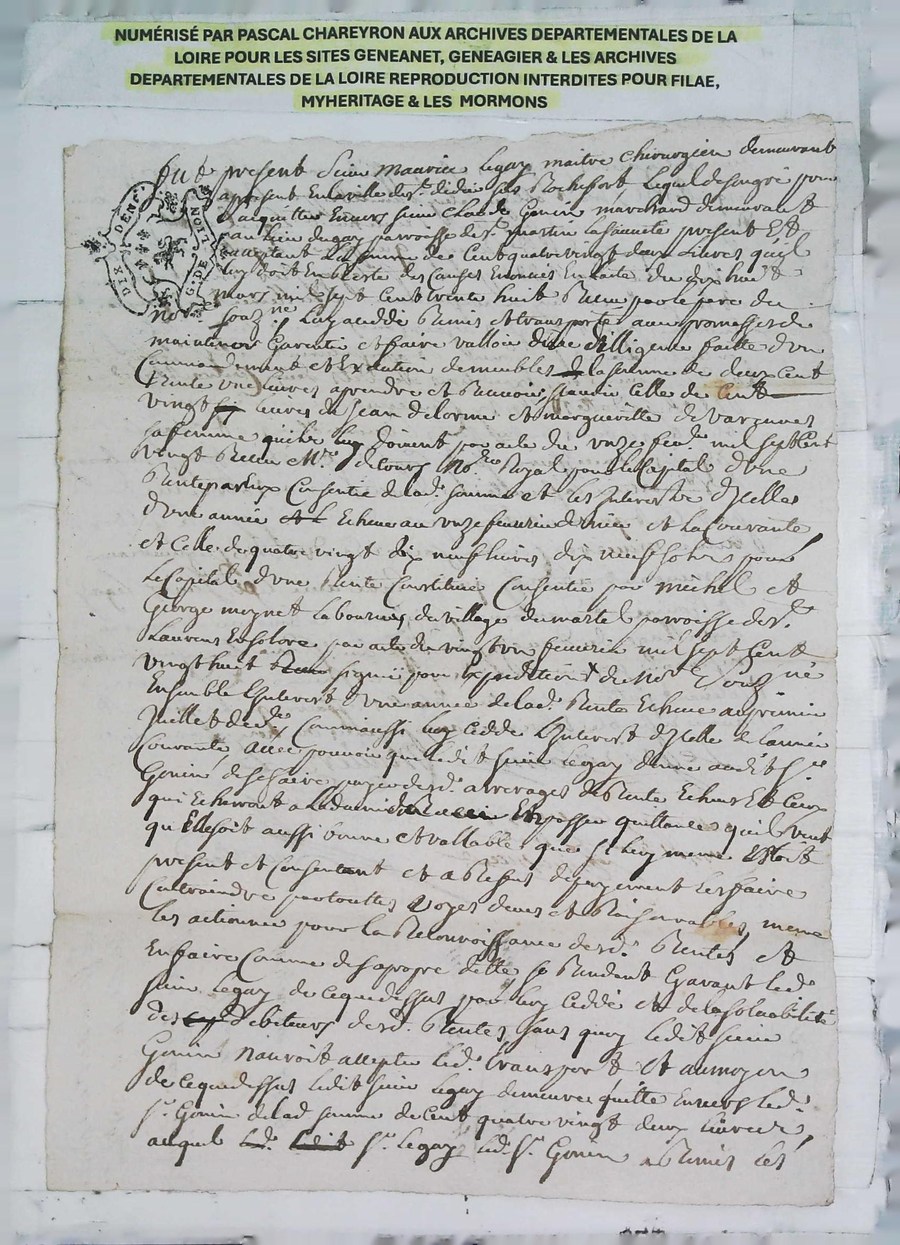 NUMÉRISÉ PAR PASCAL CHAREYRON AUX ARCHIVES DEPARTEMENTALES DE LA
LOIRE POUR LES SITES GENEANET, GENEAGIER & LES ARCHIVES
DEPARTEMENTALES DE LA LOIRE REPRODUCTION INTERDITES POUR FILAE,
MYHERITAGE & LES MORMONS
DIX DENS
G. DE LION
fut present sieur Maurice Legay maitre chirurgien demeurant
apresent en la ville de st. didier sous Rochefort lequel de son gré pour
s'acquitter envers sieur Claude Gonin marchand demeurant
au lieu dugay paroisse de st. martin la sauveté present et
acceptant la somme de Cent quatre vingt deux livres qu'il
luy doit en Reste des causes enoncées en l'acte du dix huit
mars mil sept cent trente huit Receu par
nore souz.né luy a cédé Remis et transporté avec promesses de
maintenir Garentir et faire valloir dilligence faitte d'un
Commandement et Exécution de meubles la somme de deux cent
trente une livres aprendre et Recevoir scavoir celle de Cent
vingt livres de Jean delorme et marguerite de varennes
sa femme qu'ils luy doivent par acte du onze feve. mil sept cent
vingt Receu Me. detours No.re Royal pour le Capital d'une
Rente par eux Consentie de lad. somme et les Interests d'Icelle
d'une année Echeue au onze fevrier dernier et la Courante,
et Celle de quatre vingt dix neuf livres dix neuf sols pour
le Capital d'une Rente Constituée Consentie par michel et
George moynet laboureurs du village du martel paroisse de st.
Laurens En solore par acte du vingt un fevrier mil sept Cent
vingt huit signé pour Expedition de No.re Souz.né
Ensemble l'Interest d'une année de lad. Rente Echeue au premier
Juillet de Comm'aussi luy cedde l'Interest d'Icelle de l'année
Courante avec pouvoir que ledit sieur Legay donne audit s.r
Gonin de se faire payer desd. arrerages de Rente Echeus Et Ceux
qui Echerront a l'advenir Et passer quittances qu'il veut
qu'Elle soit aussi bonne et vallable que si luy meme Estoit
present et Consentant et a Refus de payement les faire
Contraindre par touttes voyes deues et Raisonnables, meme
les actionner pour la Reconnoissance desd. Rentes, et
En faire Comme de sa propre dette se Rendant Garant led.
sieur Legay de ce que dessus par luy ceddé et de la solvabilité
des debiteurs desd. Rentes sans quoy ledit sieur
Gonin n'auroit accepté led. transport et au moyen
de ce que dessus ledit sieur Legay demeure quitte envers led.
s.r Gonin de lad. somme de cent quatre vingt deux livres,
auquel s.r Legay led. s.r Gonin a Remis les